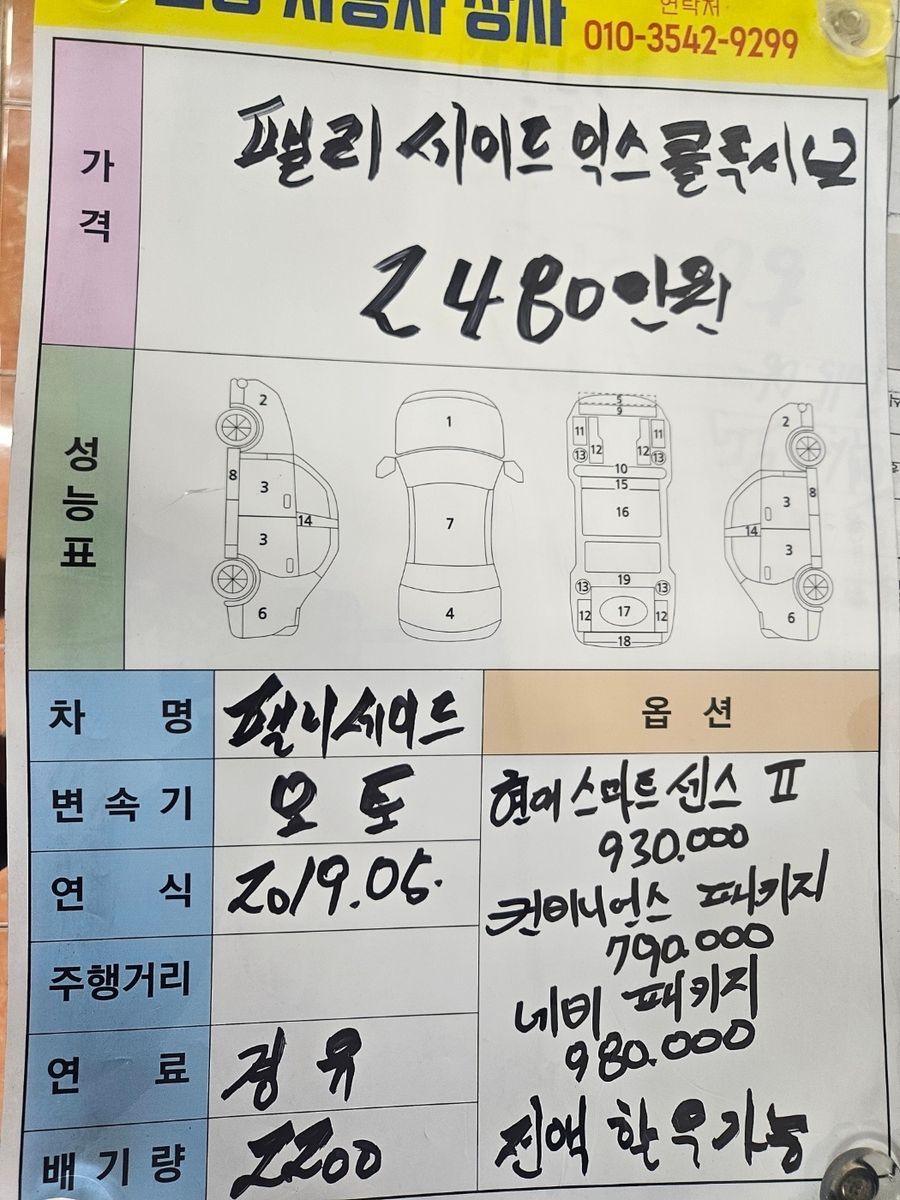 자동차 상사
연락처
010-3542-9299
가격
팰리세이드 익스클루시브
2480만원
성능표
2 8 3 14 3 6
1 7 4
5 9 11 12 13 12 11 13 10 15 16 19 13 13 12 17 12 18
2 3 8 14 3 6
차명 팰니세이드
옵션
변속기 오토
현대스마트센스 II
930.000
연식 2019.05.
컨비니언스 패키지
790.000
주행거리
네비 패키지
980.000
연료 경유
배기량 2200
전액 할부가능